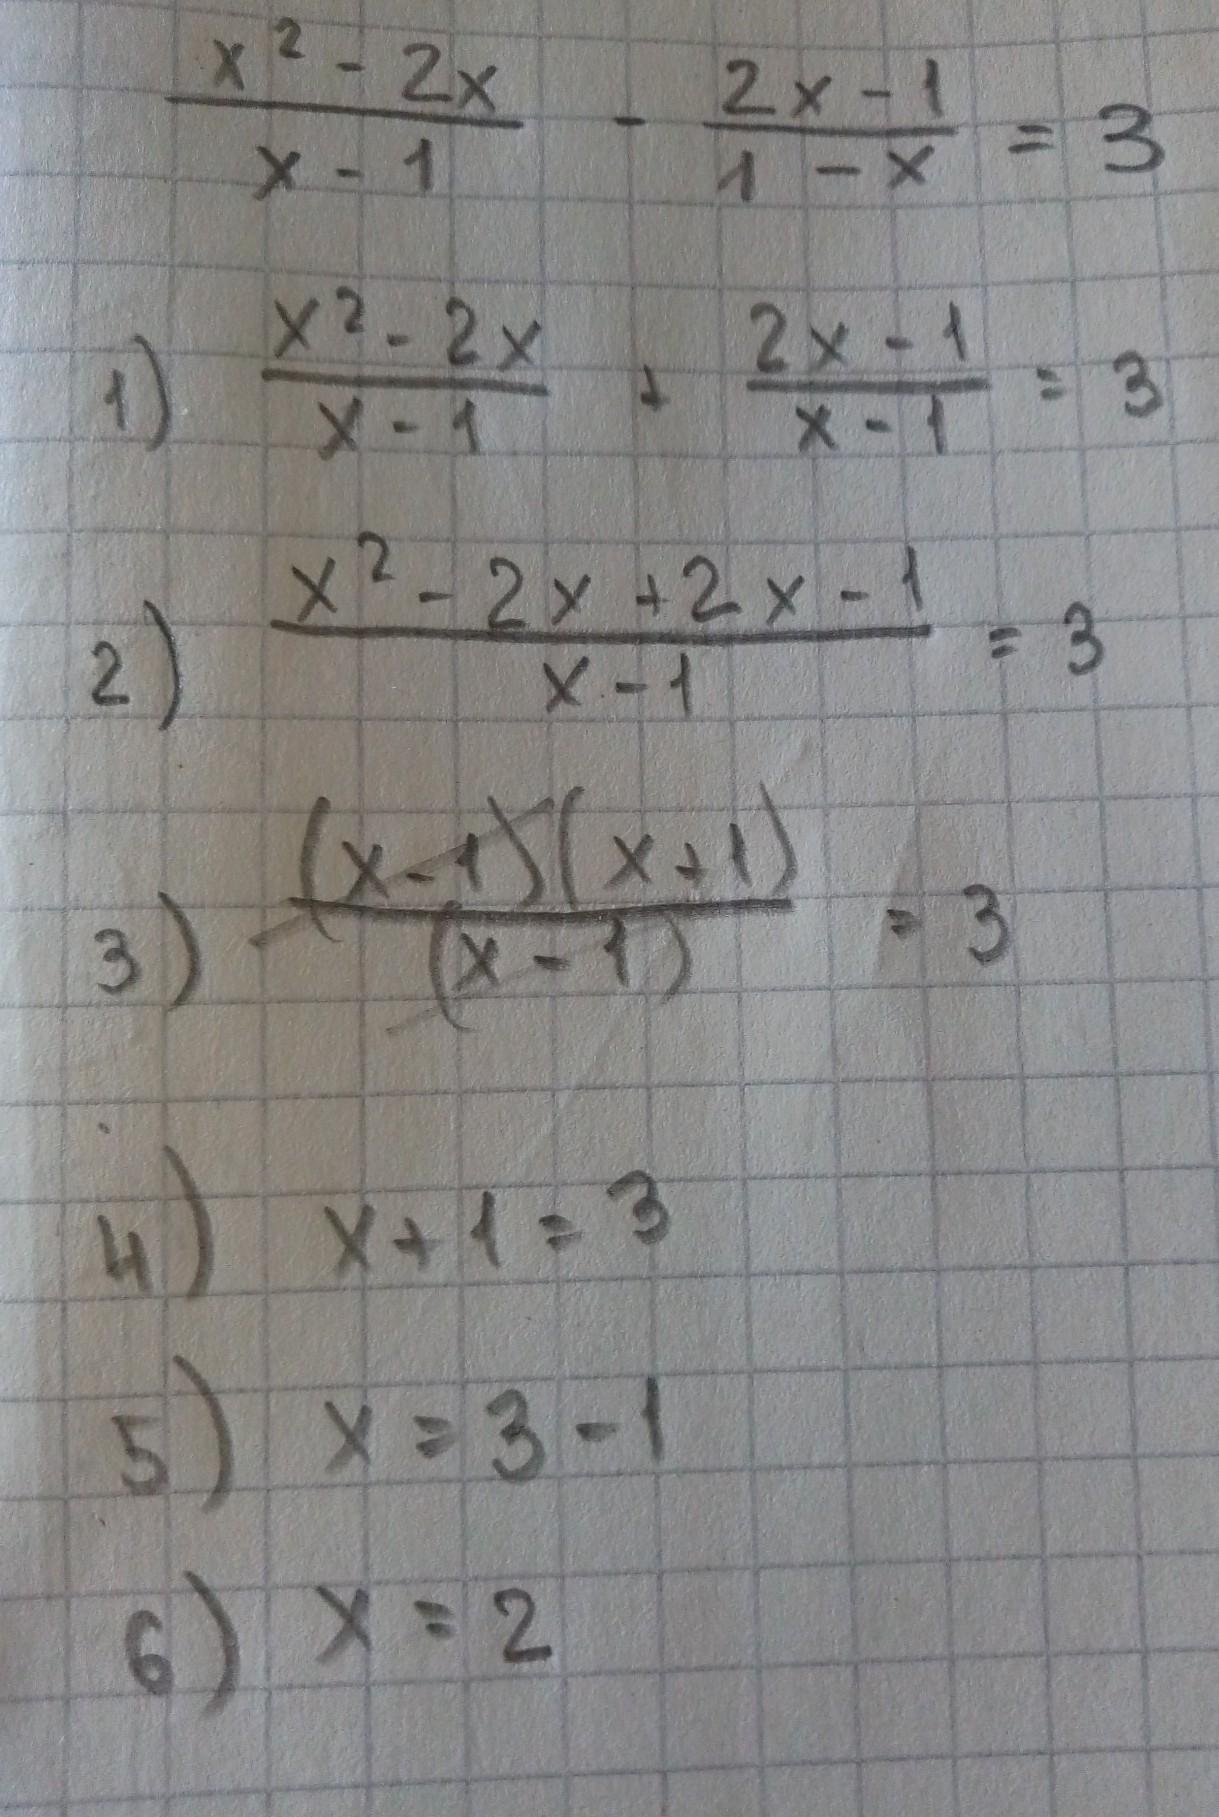 x² - 2x / x - 1 - 2x - 1 / 1 - x = 3
1) x² - 2x / x - 1 + 2x - 1 / x - 1 = 3
2) x² - 2x + 2x - 1 / x - 1 = 3
3) (x - 1)(x + 1) / (x - 1) = 3
4) x + 1 = 3
5) x = 3 - 1
6) x = 2